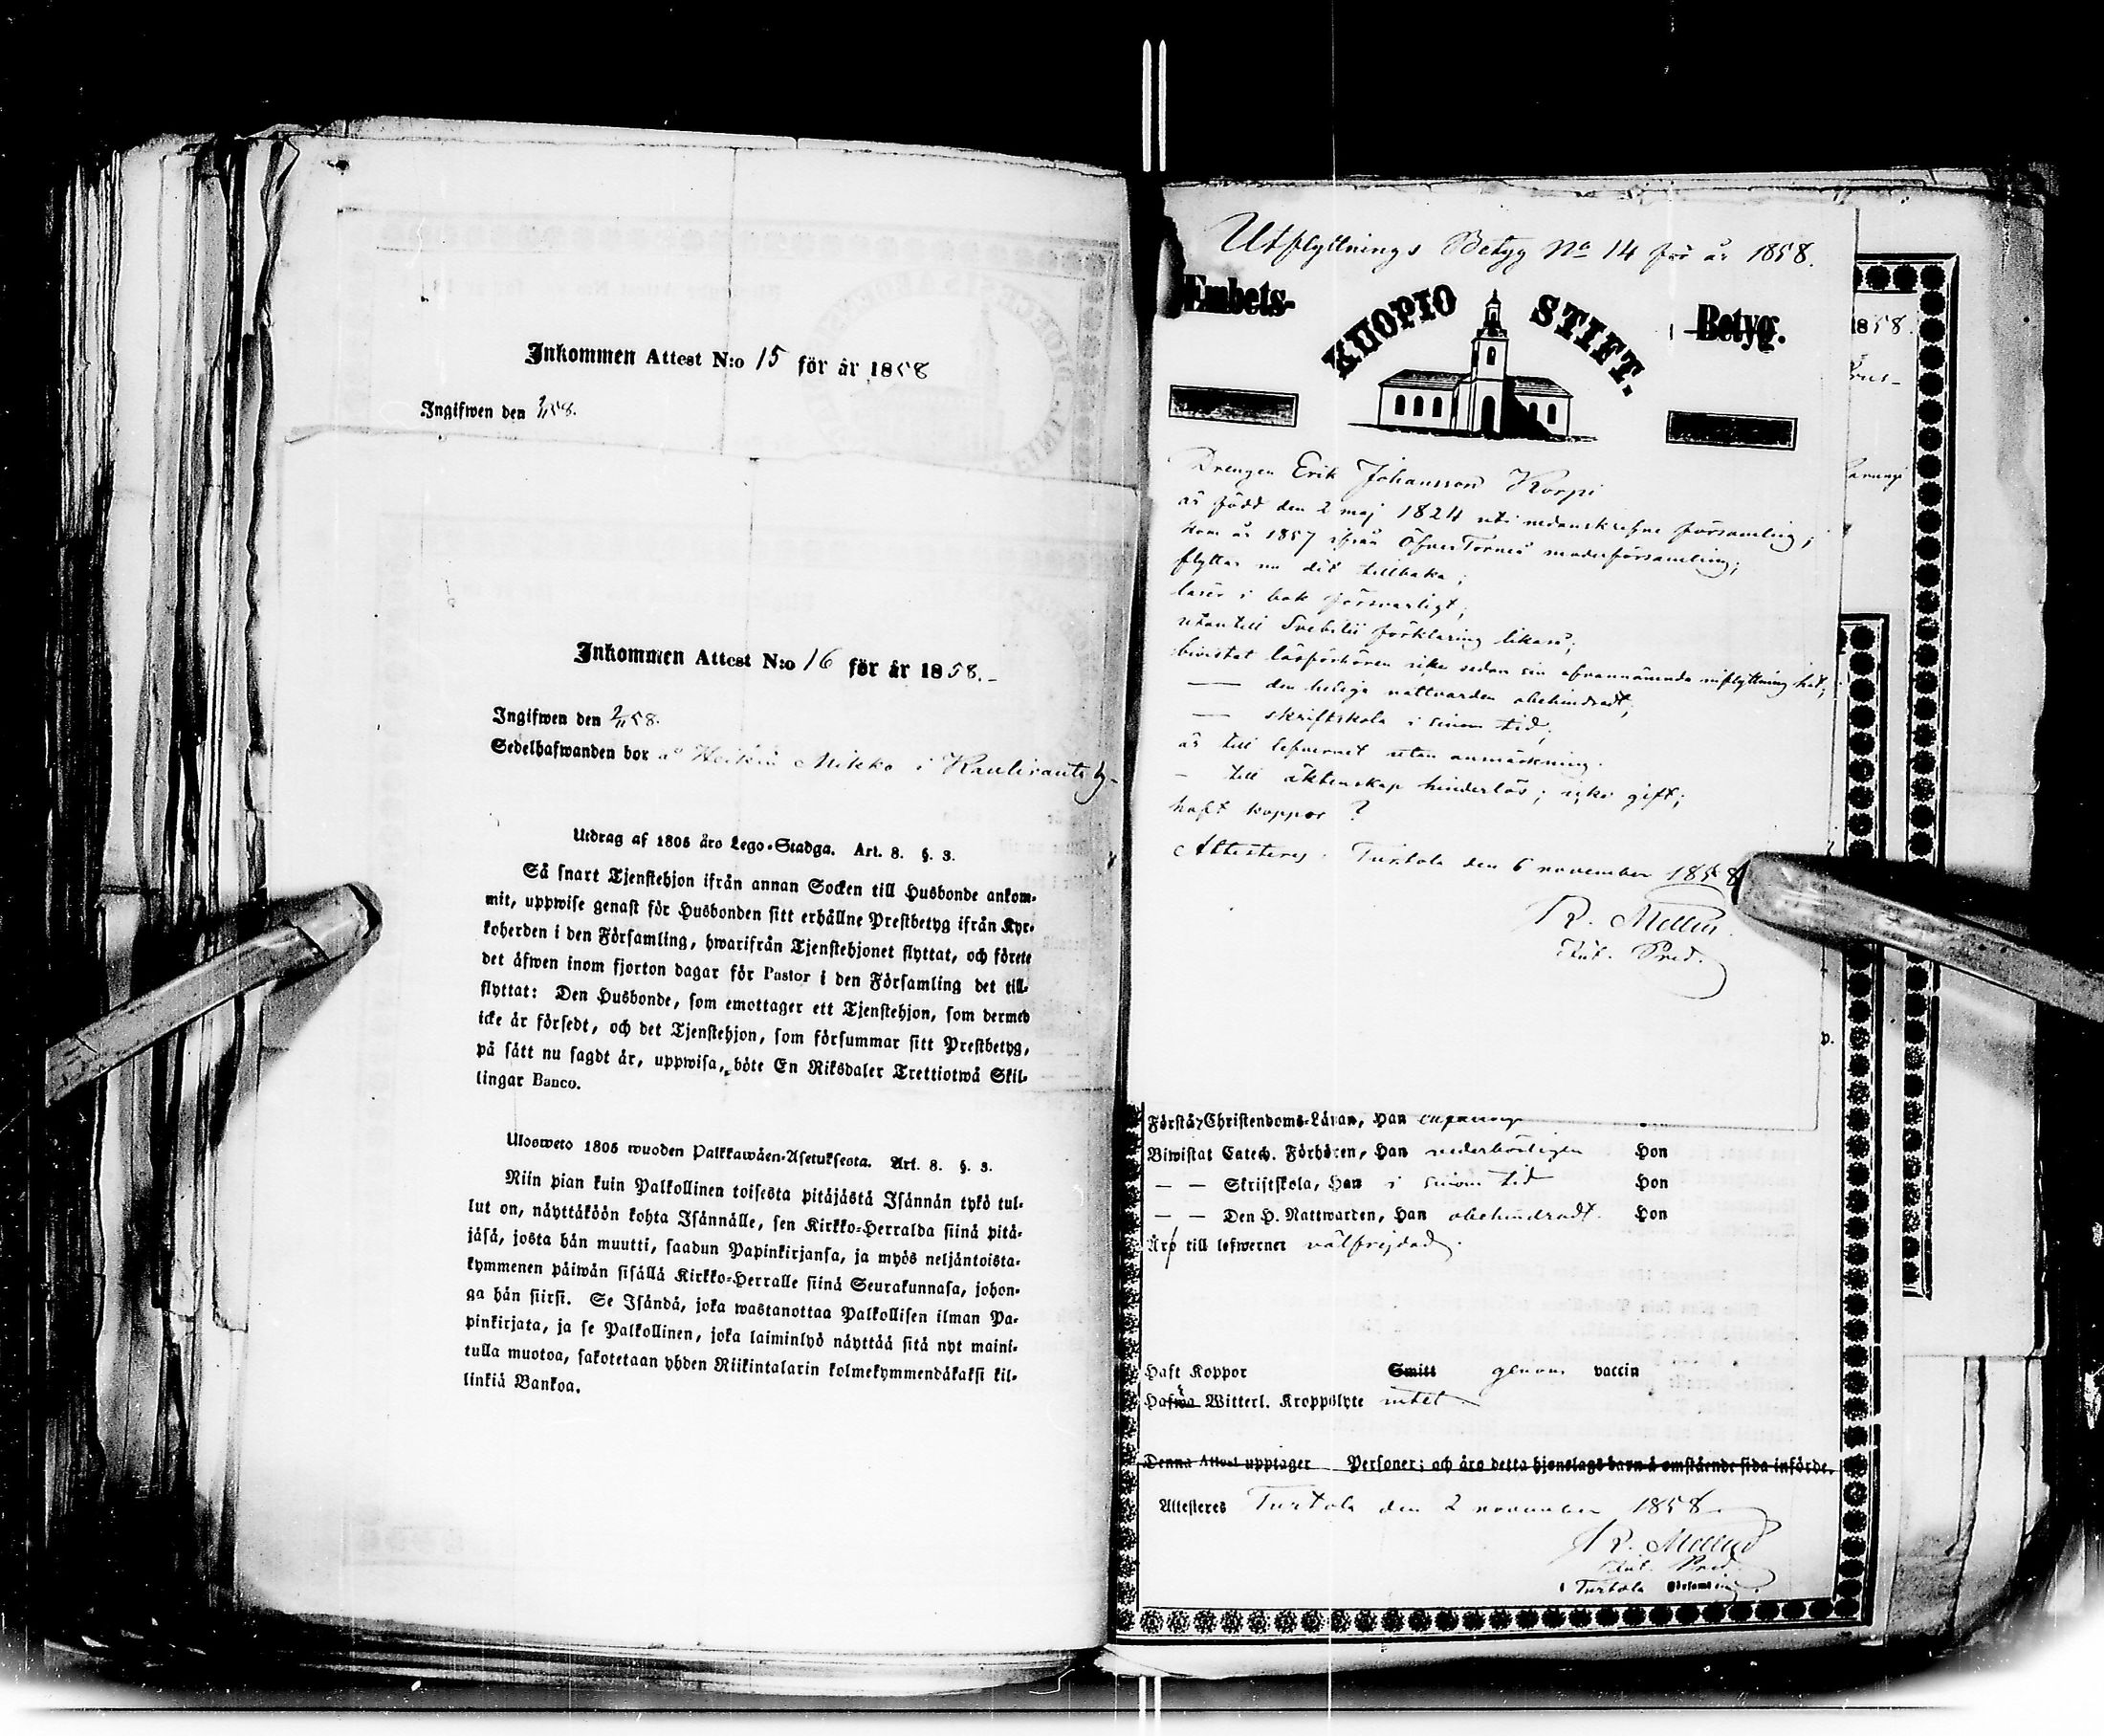 Inkommen Attest N:o 15 för år 1858
Ingifwen den 7/11 58.
Inkommen Attest N:o 16 för år 1858.-
Ingifwen den 9/11 58.
Sedelhafwanden bor å Heikin Mikko i Kauliranta by-
Utdrag af 1805 års Lego-Stadga. Art. 8. §. 3.
Så snart Tjenstehjon ifrån annan Socken till Husbonde ankom-
mit, uppwise genast för Husbonden sitt erhållne Prestbetyg ifrån Kyr-
koherden i den Församling, hwarifrån Tjenstehjonet flyttat, och förete
det äfwen inom fjorton dagar för Pastor i den Församling det till-
flyttat: Den Husbonde, som emottager ett Tjenstehjon, som dermed
icke är försedt, och det Tjenstehjon, som försummar sitt Prestbetyg,
på sätt nu sagdt är, uppwisa, böte En Riksdaler Trettiotwå Skil-
lingar Banco.
Ulosweto 1805 wuoden Palkkawäen-Asetuksesta. Art. 8. §. 3.
Niin pian kuin Palkollinen toisesta pitäjästä Isännän tykö tul-
lut on, näyttäköön kohta Isännälle, sen Kirkko-Herralda siinä pitä-
jäsä, josta hän muutti, saadun Papinkirjansa, ja myös neljäntoista-
kymmenen päiwän sisällä Kirkko-Herralle siinä Seurakunnasa, johon-
ga hän siirsi. Se Isändä, joka wastanottaa Palkollisen ilman Pa-
pinkirjata, ja se Palkollinen, joka laiminlyö näyttää sitä nyt maini-
tulla muotoa, sakotetaan yhden Riikintalarin kolmekymmendäkaksi kil-
linkiä Bankoa.
Utflyttnings Betyg No 14 för år 1858.
Embets-
KUOPIO STIFT.
Betyg.
Drengen Erik Johansson Korpi
är född den 2 maj 1824 uti nedanskrefne församling;
kom år 1857 ifrån Öfver Torneå moderförsamling;
flyttar nu dit tillbaka;
läser i bok försvarligt;
utantill Svebilii förklaring likaså;
bivistat läsförhören icke sedan sin ofvannämnda inflyttning hit;
— den heliga nattvarden obehindradt;
— skriftskola i sinom tid;
är till lefvernet utan anmärkning.
- till äktenskap hinderlös; icke gift;
haft koppor ?
Attesteras. Turtola den 6 november 1858
R. Mellin.
Pred.
1858.
Förstår Christendoms-Läran, Han
Biwistat Catech. Förhören, Han vederbörligen Hon
— — Skriftskola, Han i sinom tid Hon
— — Den H. Nattwarden, Han obehindradt. Hon
Äro till lefwernet välfrejdad.
Haft Koppor Smitt genom vaccin
Hafwa Witterl. Kroppslyte intet
Denna Attest upptager Personer; och äro detta hjonelags barn å omstående sida införde.
Attesteres Turtola den 2 november 1858.
R. Mellin
Pred.
i Turtola Församling.